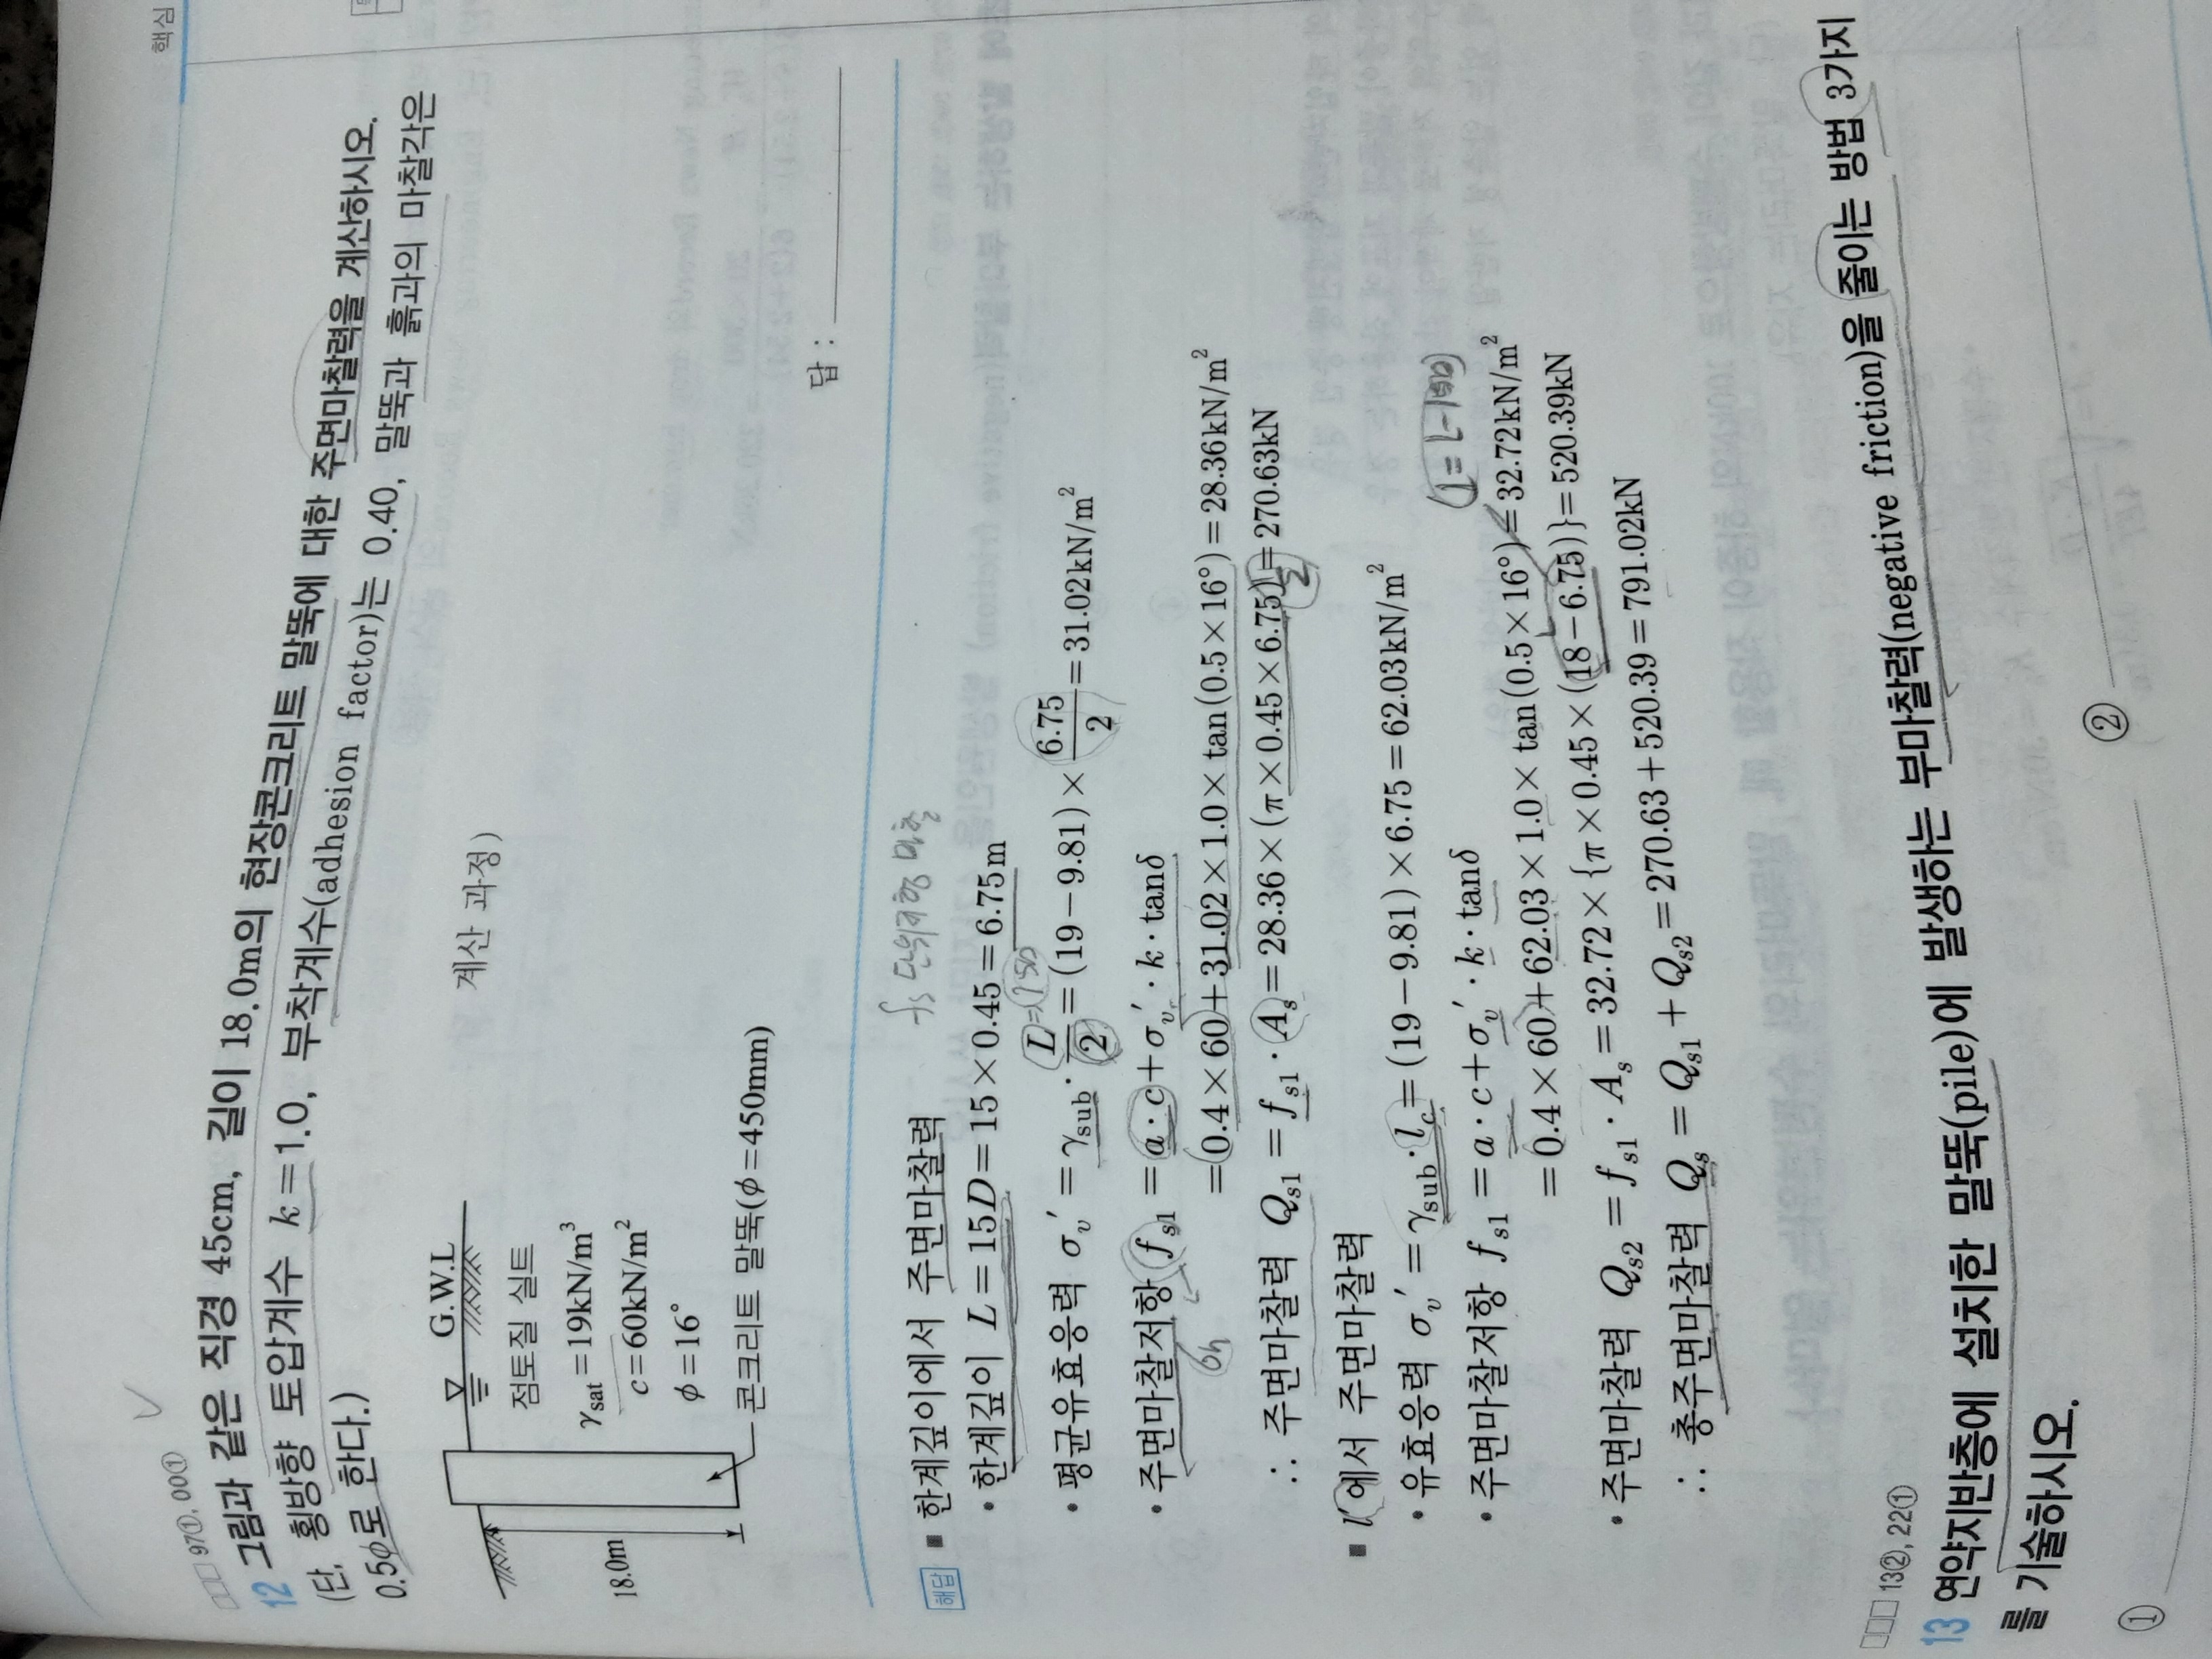 핵심
97①, 00①
12 그림과 같은 직경 45cm, 길이 18.0m의 현장콘크리트 말뚝에 대한 주면마찰력을 계산하시오.
(단, 횡방향 토압계수 k=1.0, 부착계수(adhesion factor)는 0.40, 말뚝과 흙과의 마찰각은
0.5ϕ로 한다.)
G.W.L
점토질 실트
γsat=19kN/m³
c=60kN/m²
ϕ=16°
18.0m
콘크리트 말뚝(ϕ=450mm)
계산 과정)
답 :
해답 ■ 한계깊이에서 주면마찰력
fs 단위저항 마찰
• 한계깊이 L=15D=15×0.45=6.75m
L=15D
• 평균유효응력 σv′=γsub·L/2=(19−9.81)×6.75/2=31.02kN/m²
• 주면마찰저항 fs1=a·c+σv′·k·tanδ
σh
=0.4×60+31.02×1.0×tan(0.5×16°)=28.36kN/m²
∴ 주면마찰력 Qs1=fs1·As=28.36×(π×0.45×6.75)=270.63kN
■ l′에서 주면마찰력
• 유효응력 σv′=γsub·lc=(19−9.81)×6.75=62.03kN/m²
• 주면마찰저항 fs1=a·c+σv′·k·tanδ
=0.4×60+62.03×1.0×tan(0.5×16°)=32.72kN/m²
• 주면마찰력 Qs2=fs1·As=32.72×{π×0.45×(18−6.75)}=520.39kN
∴ 총주면마찰력 Qs=Qs1+Qs2=270.63+520.39=791.02kN
13②, 22①
13 연약지반층에 설치한 말뚝(pile)에 발생하는 부마찰력(negative friction)을 줄이는 방법 3가지
를 기술하시오.
① ②